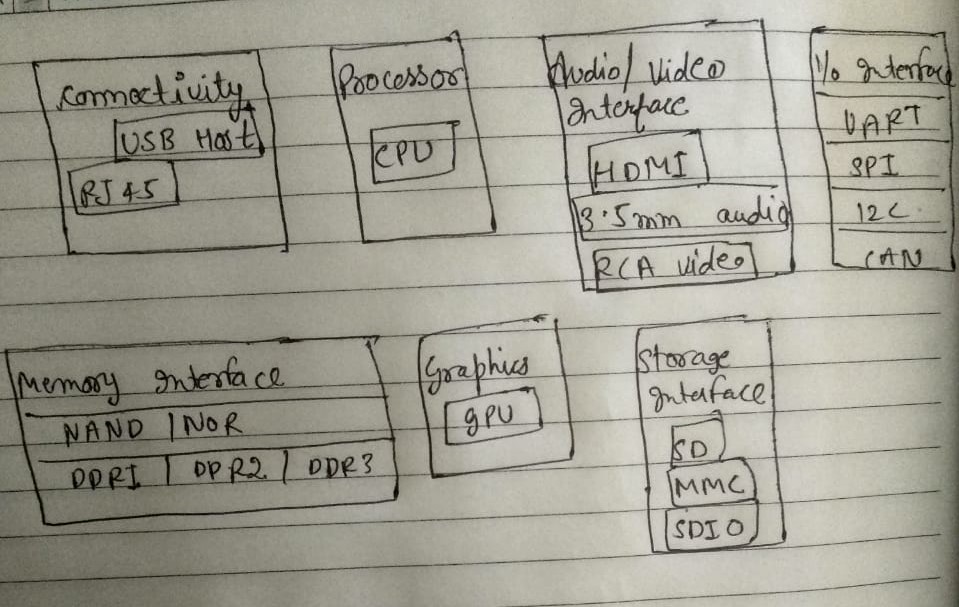 Connectivity
USB Host
RJ45
Processor
CPU
Audio/Video
Interface
HDMI
3.5mm audio
RCA video
I/o Interface
UART
SPI
I2C
CAN
Memory Interface
NAND | NOR
DDR1 | DDR2 | DDR3
Graphics
GPU
Storage
Interface
SD
MMC
SDIO